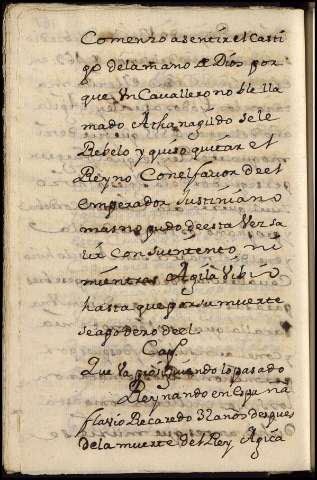 Comenzo a sentir el Casti
go dela mano de Dios por
que Vn Cavallero noble lla
mado Athanagildo sele
Rebelo y quiso quitar el
Reyno Conelfavor deel
emperador Justiniano
mas no pudo deesta Vez sa
lir Consuyntento ni
mientras Agila vibio
hasta que por su muerte
se apodero deel
Cap.
Que ba prosiguiendo lo pasado
Reynando en Espana
flavio Recaredo 32 anos despues
dela muerte del Rey Agila